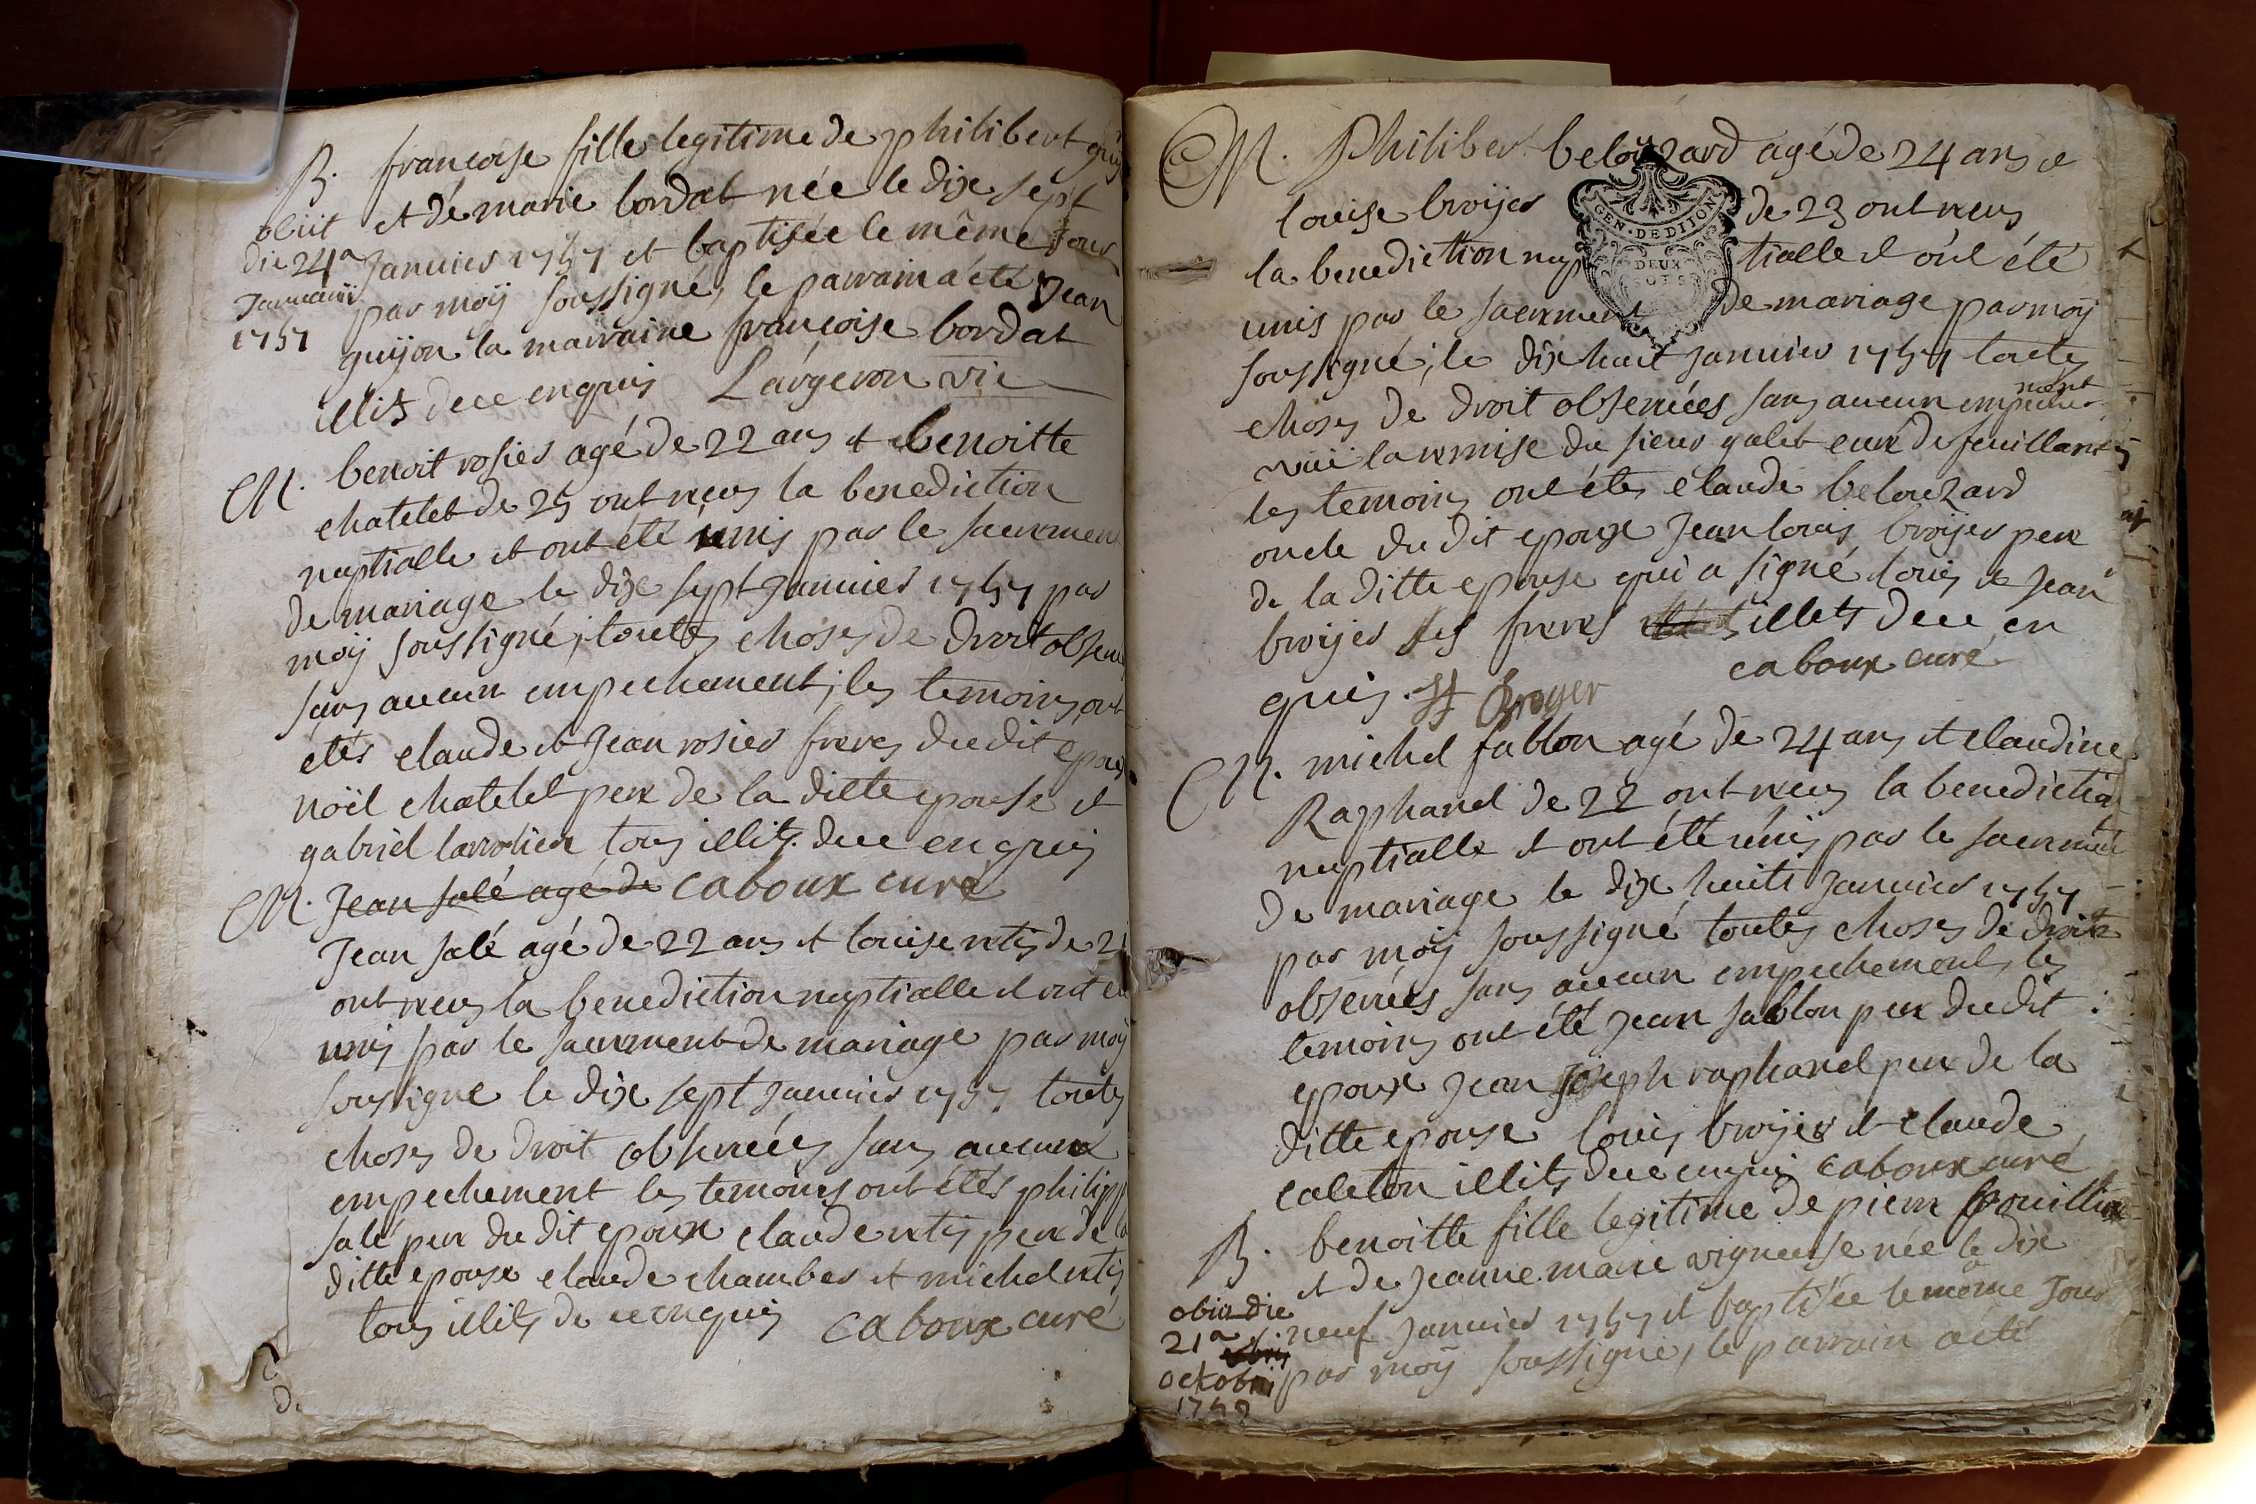 B. francoise fille legitime de philibert
et de marie bordat née le dix sept
Janvier 1757 et baptisée le même Jour
par moÿ soussigné, le parrain a été Jean
guÿon la marraine francoise bordat
illits de ce enquis Largeron vic
obiit
die 24a
Januarii
1757
M. benoit rosier agé de 22 ans et benoitte
chatelet de 25 ont recus la benediction
nuptialle et ont été unis par le sacrement
de mariage le dix sept Janvier 1757 par
moÿ soussigné; toutes choses de droit obser
sans aucun empechement; les temoins ont
étés claude et Jean rosier freres du dit epoux
noël chatelet pere de la ditte epouse et
gabriel tous illits de ce enquis
M. Jean salé agé de caboux curé
Jean salé agé de 22 ans et louise retis de 2
ont recus la benediction nuptialle et ont été
unis par le sacrement de mariage par moÿ
soussigne le dix sept Janvier 1757 toutes
choses de droit observées sans aucun
empechement les temoins ont étés philippe
salé pere du dit epoux claude retis pere de la
ditte epouse claude chamber et michel retis
tous illits de ce enquis caboux curé
M. Philibert belouzard agé de 24 ans et
louise broÿer de 23 ont recus
GEN. DE DIJON
DEUX
SOLS
la benediction nuptialle et ont été
unis par le sacrement de mariage par moÿ
soussigné; le dix huit Janvier 1757 toutes
choses de droit observées sans aucun empeche
ment
vüe la remise du sieur galet curé de feuillans
les temoins ont étés claude belouzard
oncle du dit epoux Jean louis broÿer pere
de la ditte epouse qui a signé louis et Jean
broÿer ses freres illets de ce en
quis. Broyer caboux curé
M. michel sablon agé de 24 ans et claudine
Raphanel de 22 ont recus la benediction
nuptialle et ont été unis par le sacrement
de mariage le dix huits Janvier 1757
par moÿ soussigné toutes choses de droit
observées sans aucun empechement, les
temoins ont été Jean sablon pere du dit
epoux Jean Joseph raphanel pere de la
ditte epouse louis broÿer et claude
caleton illits de ce enquis caboux curé
B. benoitte fille legitime de pierre
et de Jeanne marie vigneuse née le dix
neuf Janvier 1757 et baptisée le même Jour
par moÿ soussigné, le parrain a été
obiit die
21a
octobris